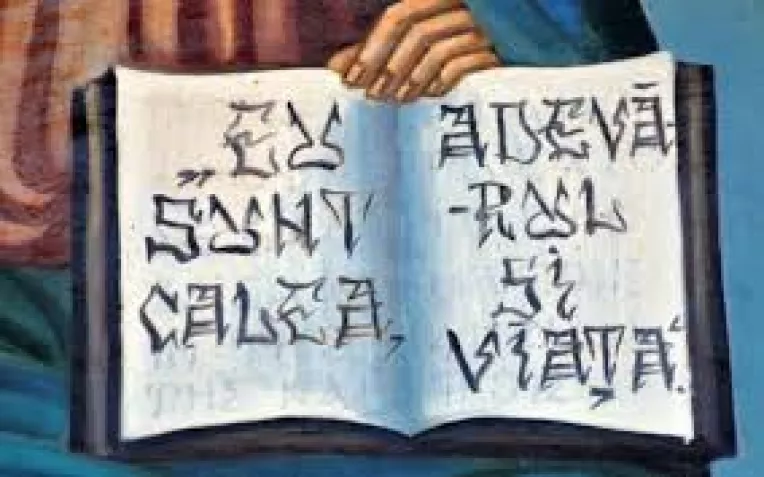 „EU
SUNT
CALEA,
ADEVĂ-
-RUL
ȘI
VIAȚA.